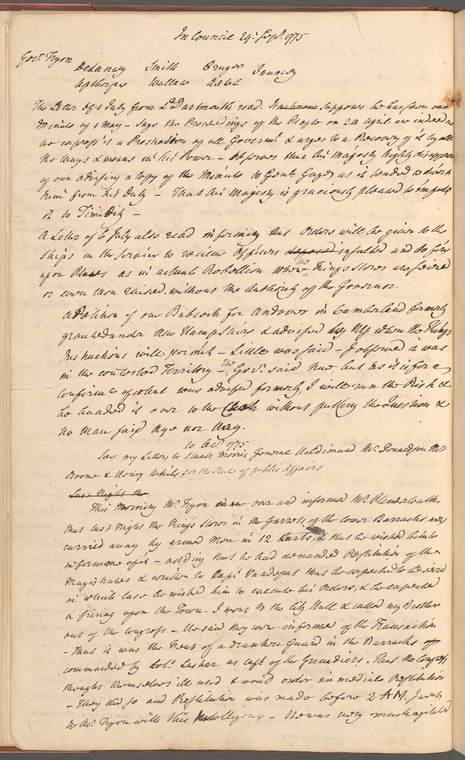 In Council 29: Sepr. 1775
Govr. Tryon
DeLancey Smith Cruger Jauncey
Apthorpe Wallace Axtel
The Letter of 5 July from Ld Dartmouth read. Supposes he has seen our
Minute of 1 May – says the Proceedings of the People on 24 April are indeed as
we express it a Prostration of all Governmt. & urges to a Recovery of it by all
the Ways & means in his Power – observes that his Majesty highly disapproves
of our advising a Copy of the Minute to Genl. Gage as it tended to divert
him from his Duty – That his Majesty is graciously pleased to impute
it to Timidity –
A Letter of 6 July also read informing that Orders will be given to the
Ships in the Service to receive Officers insulted and to fire
upon Places as in actual Rebellion where the Kings Stores are seized
or even then raised without the Authority of the Governor.
A Petition of our Babcock for Andover in Cumberland formerly
granted under New Hampshire & advised by Us when the Kings
Instructions will permit – Little was said – I observed it was
in the contested Territory – The Govr. said true but as it is for a
confirmance of what was advised formerly, I will run the Risk &
he handed it over to the Clerk without putting the Question &
no man said Aye nor Nay.
10 Octr. 1775
See my Letter to Small Morris General Haldimand Mr. Donaldson
& Henry White for the State of Public Affairs
Last Night the
This Morning Mr. Tryon our and informed Mr.
that last Night the Kings Stores in the Garrets of the lower Barracks were
carried away by armed Men in 12 Carts, & that he wished him to
inform me of it – adding that he had demanded Restitution of the
Magistrates & written to Capt. Vandeput that he expected to be seized
in which case he wished him to execute his Orders & he expected
a firing upon the Town. I went to the City Hall & called my Brother
out of the Congress – He said they were informed of the Transaction
– that it was the Feat of a drunken Guard in the Barracks
commanded by Coll. Lasher as Capt. of the Grenadiers. That the Congress
thought themselves ill used & would order an immediate Restitution
– They did so and Restitution was made before 2 A.M. I went
to Mr. Tryon with this Intelligence – He was very much agitated